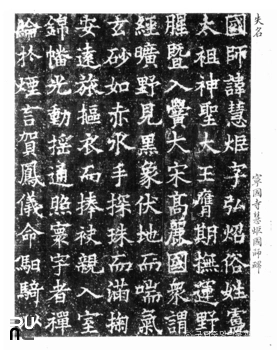 失名
寧國寺慧炬國師碑
國師諱慧炬字弘炤俗姓盧
太祖神聖大王膺期撫運野
腥暨入黌大宋高麗國衆謂
經曠野見黑象伏地而喘氣
玄砂如赤水手探珠而滿掬
安遠旅摳衣而捧袂親入室
錦幡光動搖通照寰宇者禪
綸於煙言賀鳳儀命馹騎